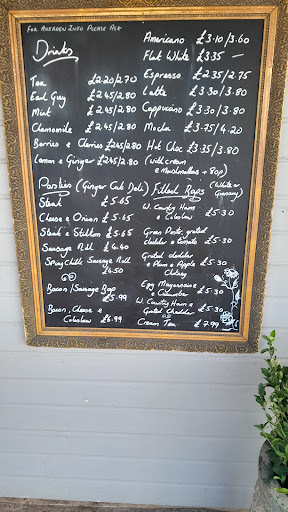 For Allergen Info Please Ask
Drinks
Tea £2.20/2.70
Earl Grey £2.45/2.80
Mint £2.45/2.80
Chamomile £2.45/2.80
Berries & Cherries £2.45/2.80
Lemon & Ginger £2.45/2.80
Americano £3.10/3.60
Flat White £3.35 —
Espresso £2.35/2.75
Latte £3.30/3.80
Cappucino £3.30/3.80
Mocha £3.75/4.20
Hot Choc £3.35/3.80
(with cream
& Marshmallows + 80p)
Pasties (Ginger Cat Deli)
Steak £5.65
Cheese & Onion £5.65
Steak & Stilton £5.65
Sausage Roll £4.40
Spicy Chilli Sausage Roll
£4.50
Bacon/Sausage Bap
£5.99
Bacon, Cheese &
Coleslaw £6.99
Filled Baps (White or
Granary)
W. Country Ham
& Coleslaw £5.30
Gran Pastis grated
cheddar & tomato £5.30
Grated cheddar
& Plum & Apple £5.30
Chutney
Egg Mayonnaise
& Cucumber £5.30
W. Country Ham &
Grated Cheddar £5.30
Cream Tea £7.99